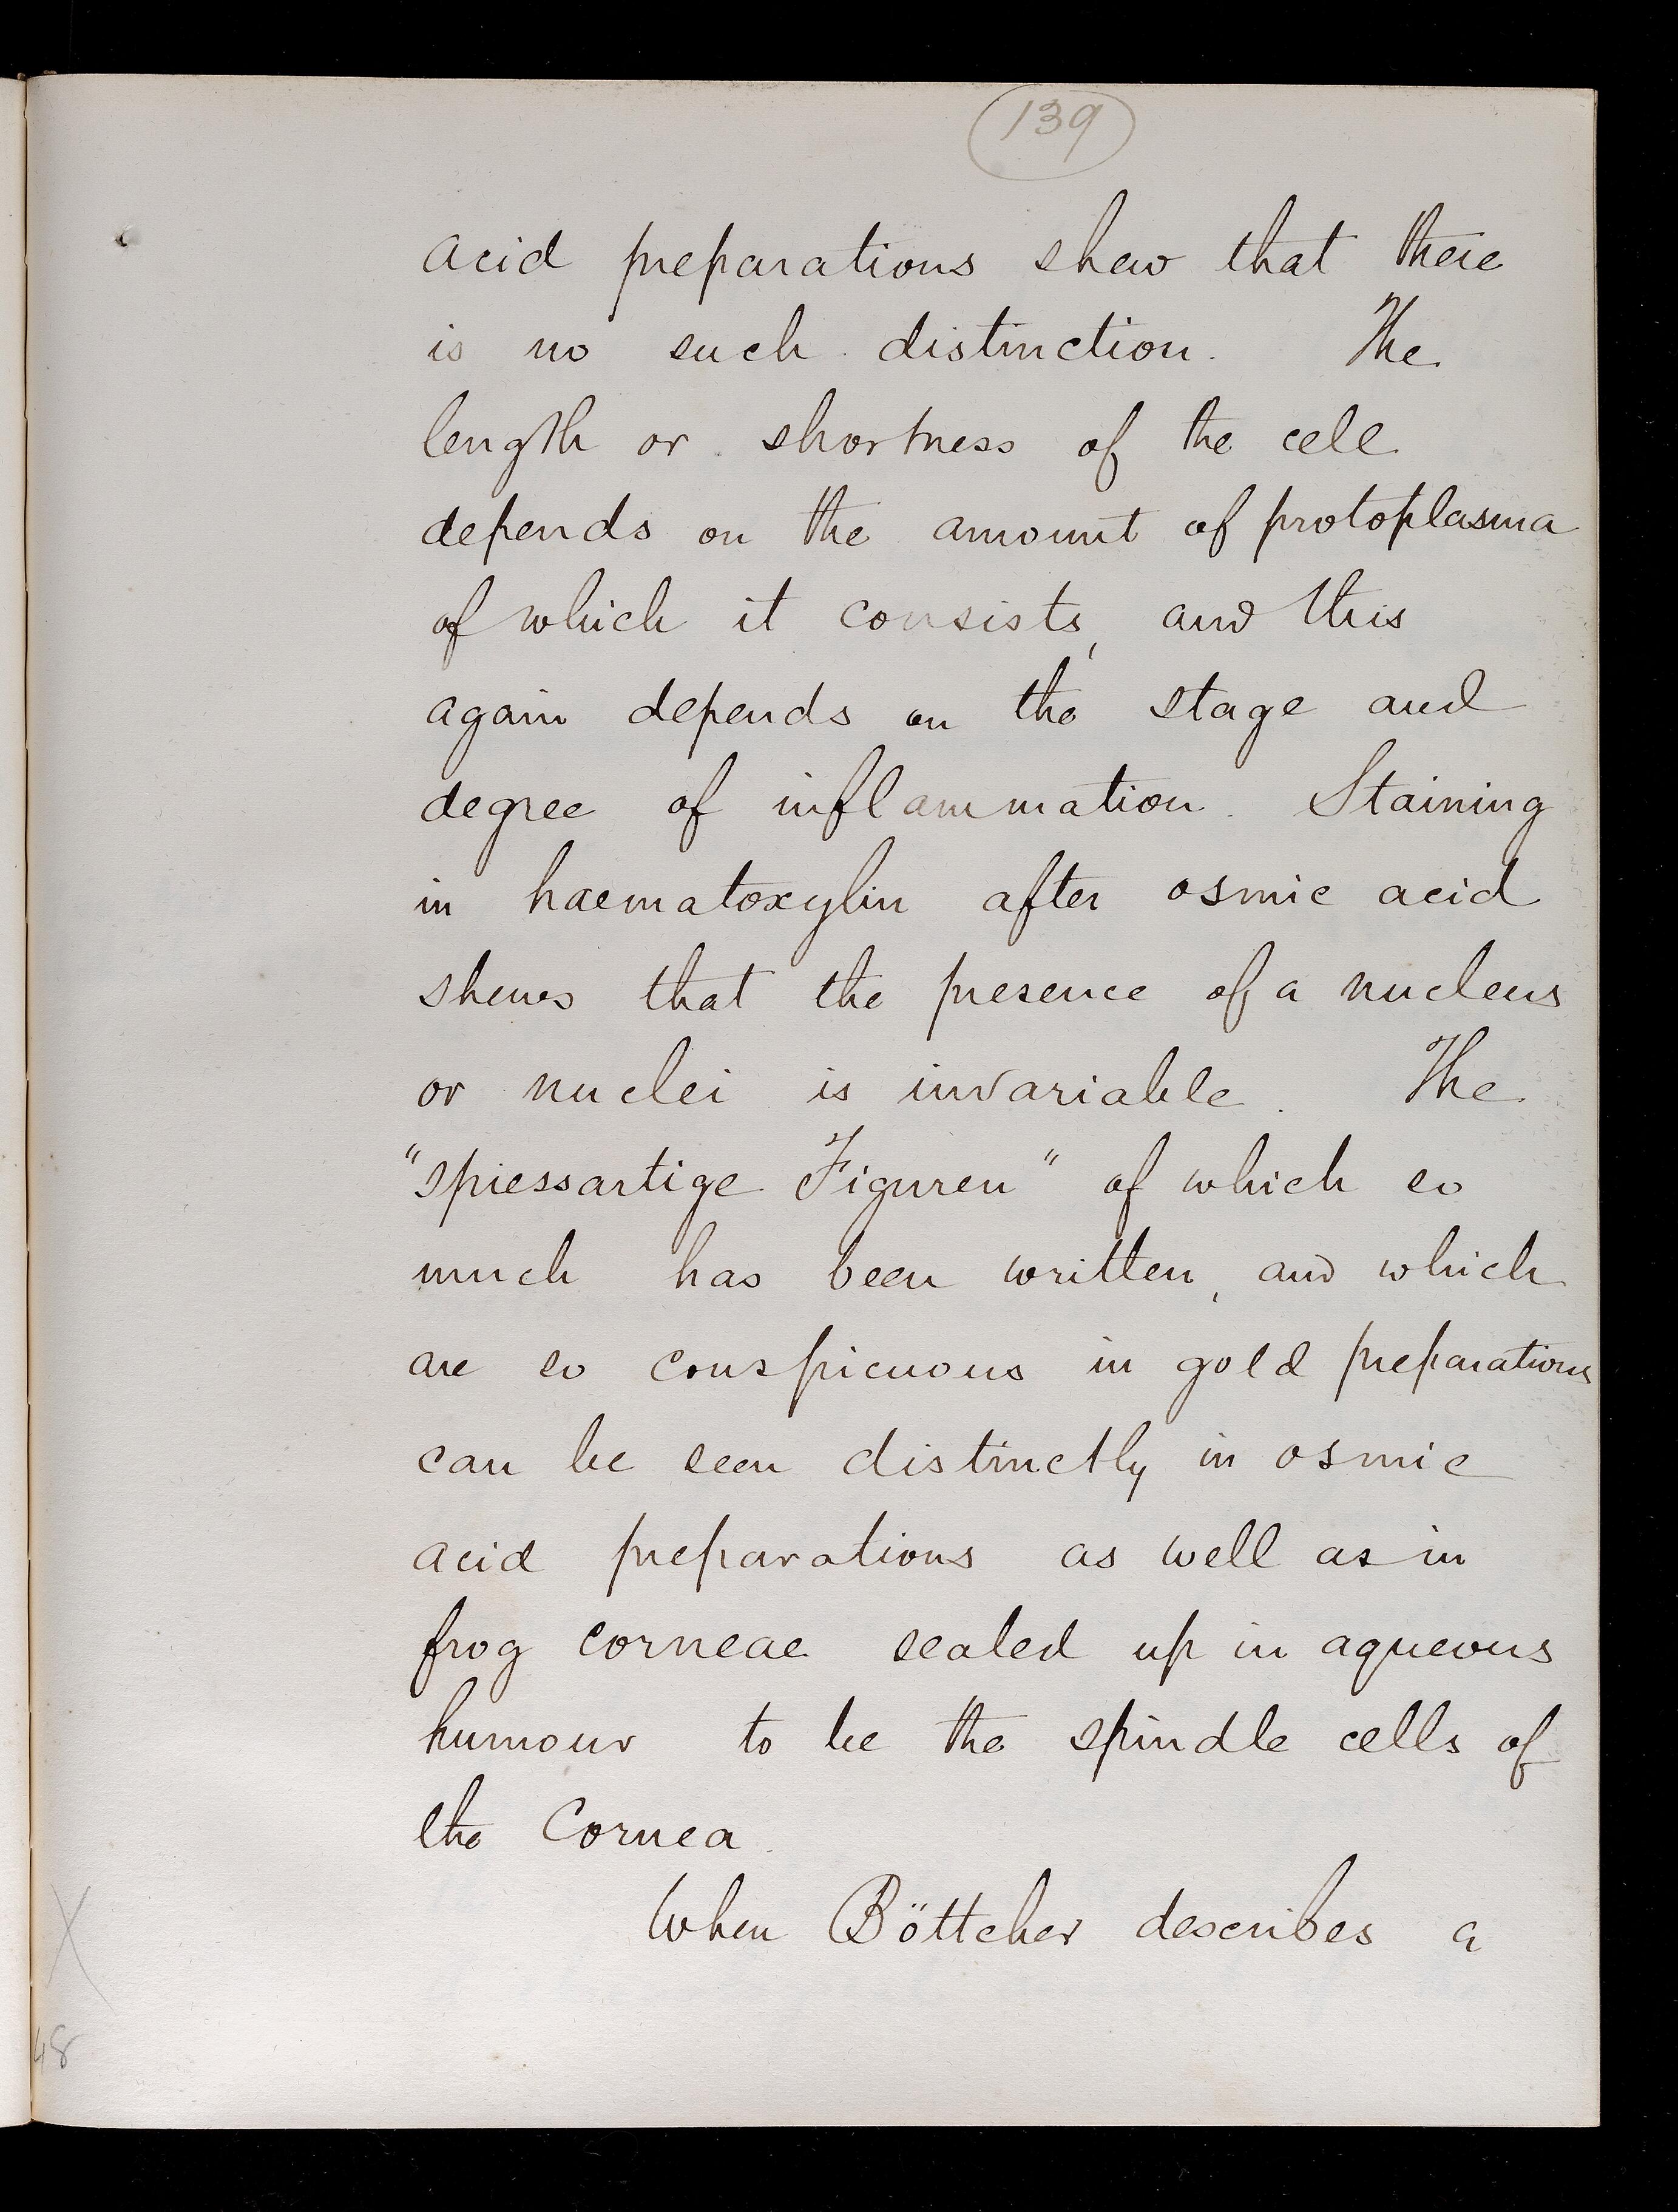 139
acid preparations shew that there
is no such distinction. The
length or shortness of the cell
depends on the amount of protoplasma
of which it consists, and this
again depends on the stage and
degree of inflammation. Staining
in haematoxylin after osmic acid
shews that the presence of a nucleus
or nuclei is invariable. The
"spiessartige Figuren" of which so
much has been written, and which
are so conspicuous in gold preparations
can be seen distinctly in osmic
acid preparations as well as in
frog corneae sealed up in aqueous
humour to be the spindle cells of
the Cornea.
When Böttcher describes a
X
48